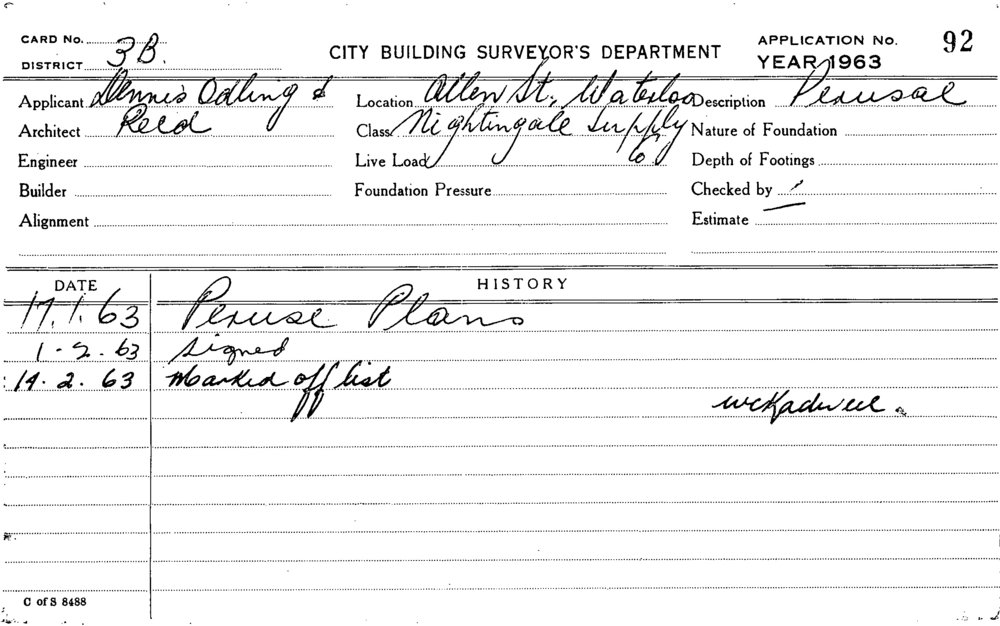 CARD No.
DISTRICT 3B.
CITY BUILDING SURVEYOR'S DEPARTMENT
APPLICATION No. 92
YEAR 1963
Applicant Dennis Odling &
Architect Reed
Engineer
Builder
Alignment
Location Allen St, Waterloo
Class Nightingale Supply
Live Load
Foundation Pressure
Description Perusal
Nature of Foundation
Depth of Footings
Checked by
Estimate
DATE HISTORY
17.1.63 Peruse Plans
1-2.63 signed
14.2.63 Marked off list
C of S 8488